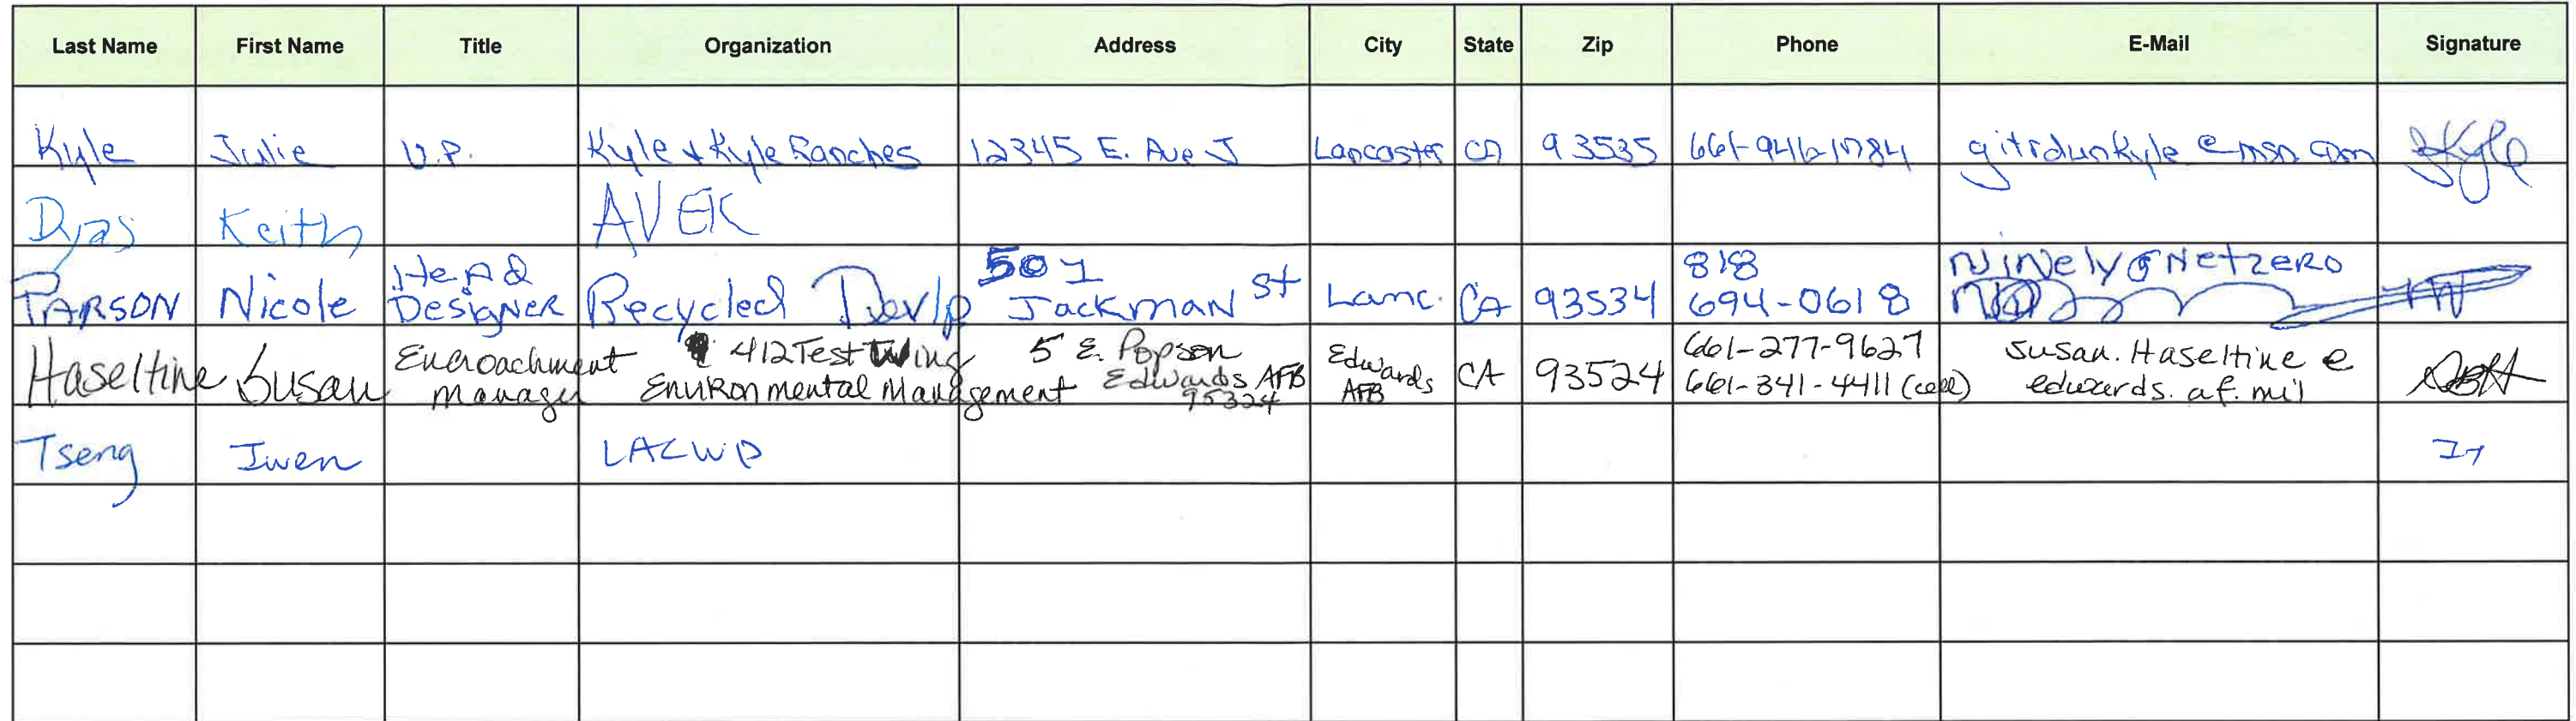 Last Name First Name Title Organization Address City State Zip Phone E-Mail Signature
Kyle Julie V.P. Kyle & Kyle Ranches 12345 E. Ave J Lancaster CA 93535 gitrdunkyle@msn.com JKyle
Dyas Keith AVEK
PARSON Nicole Head Designer Recycled Devlp 501 Jackman St Lanc. CA 93534 818 694-0618 Ninely@Netzero
Haseltine Susan Encroachment Manager 412 Test Wing Environmental Management 5 E. Popson Edwards AFB 95324 Edwards AFB CA 93524 661-277-9627 661-341-4411 (cell) Susan.Haseltine@edwards.af.mil
Tseng Jwen LACWD